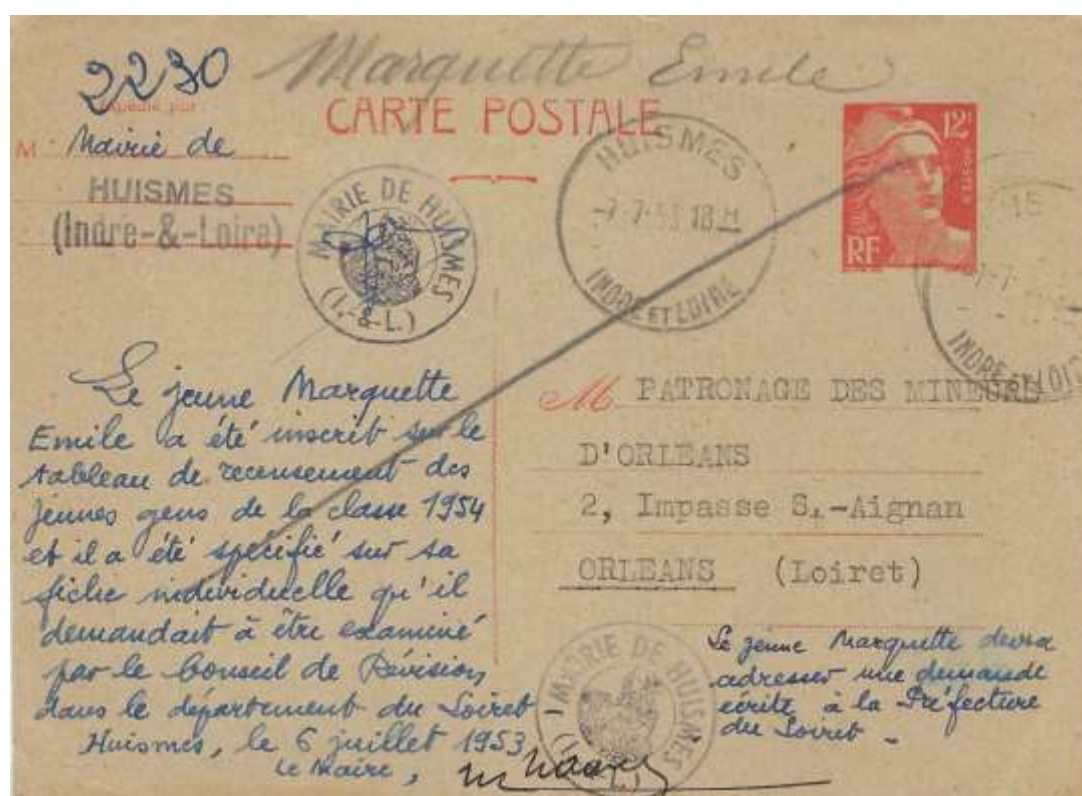 Marquette Emile
2230
CARTE POSTALE
Expédié par
M Mairie de
HUISMES
(Indre-&-Loire)
MAIRIE DE HUISMES
(I.-&-L.)
HUISMES
-7-7-53 18H
INDRE ET LOIRE
12F
RF
INDRE ET LOI
Le jeune Marquette
Emile a été inscrit sur le
tableau de recensement des
jeunes gens de la classe 1954
et il a été spécifié sur sa
fiche individuelle qu'il
demandait à être examiné
par le Conseil de Révision,
dans le département du Loiret
Huismes, le 6 juillet 1953
Le Maire,
M PATRONAGE DES MINEURS
D'ORLEANS
2, Impasse St-Aignan
ORLEANS (Loiret)
MAIRIE DE HUISMES
Le jeune Marquette devra
adresser une demande
écrite à la Préfecture
du Loiret -